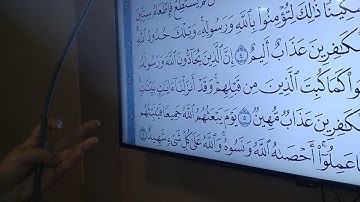 كِينًا ذَٰلِكَ لِتُؤْمِنُوا۟ بِٱللَّهِ وَرَسُولِهِۦ وَتِلْكَ حُدُودُ ٱللَّهِ
لِلْكَٰفِرِينَ عَذَابٌ أَلِيمٌ ٤ إِنَّ ٱلَّذِينَ يُحَآدُّونَ ٱللَّهَ وَرَسُولَهُۥ
كُبِتُوا۟ كَمَا كُبِتَ ٱلَّذِينَ مِن قَبْلِهِمْ وَقَدْ أَنزَلْنَآ ءَايَٰتٍۭ بَيِّنَٰتٍ
لِلْكَٰفِرِينَ عَذَابٌ مُّهِينٌ ٥ يَوْمَ يَبْعَثُهُمُ ٱللَّهُ جَمِيعًا فَيُنَبِّئُهُم
بِمَا عَمِلُوٓا۟ أَحْصَىٰهُ ٱللَّهُ وَنَسُوهُ وَٱللَّهُ عَلَىٰ كُلِّ شَىْءٍ شَهِيدٌ ٦